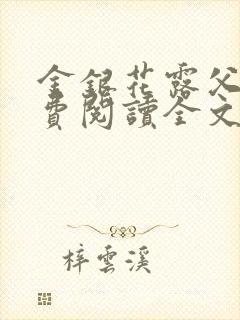 金銀花露父
費閱讀全文
梓雲溪